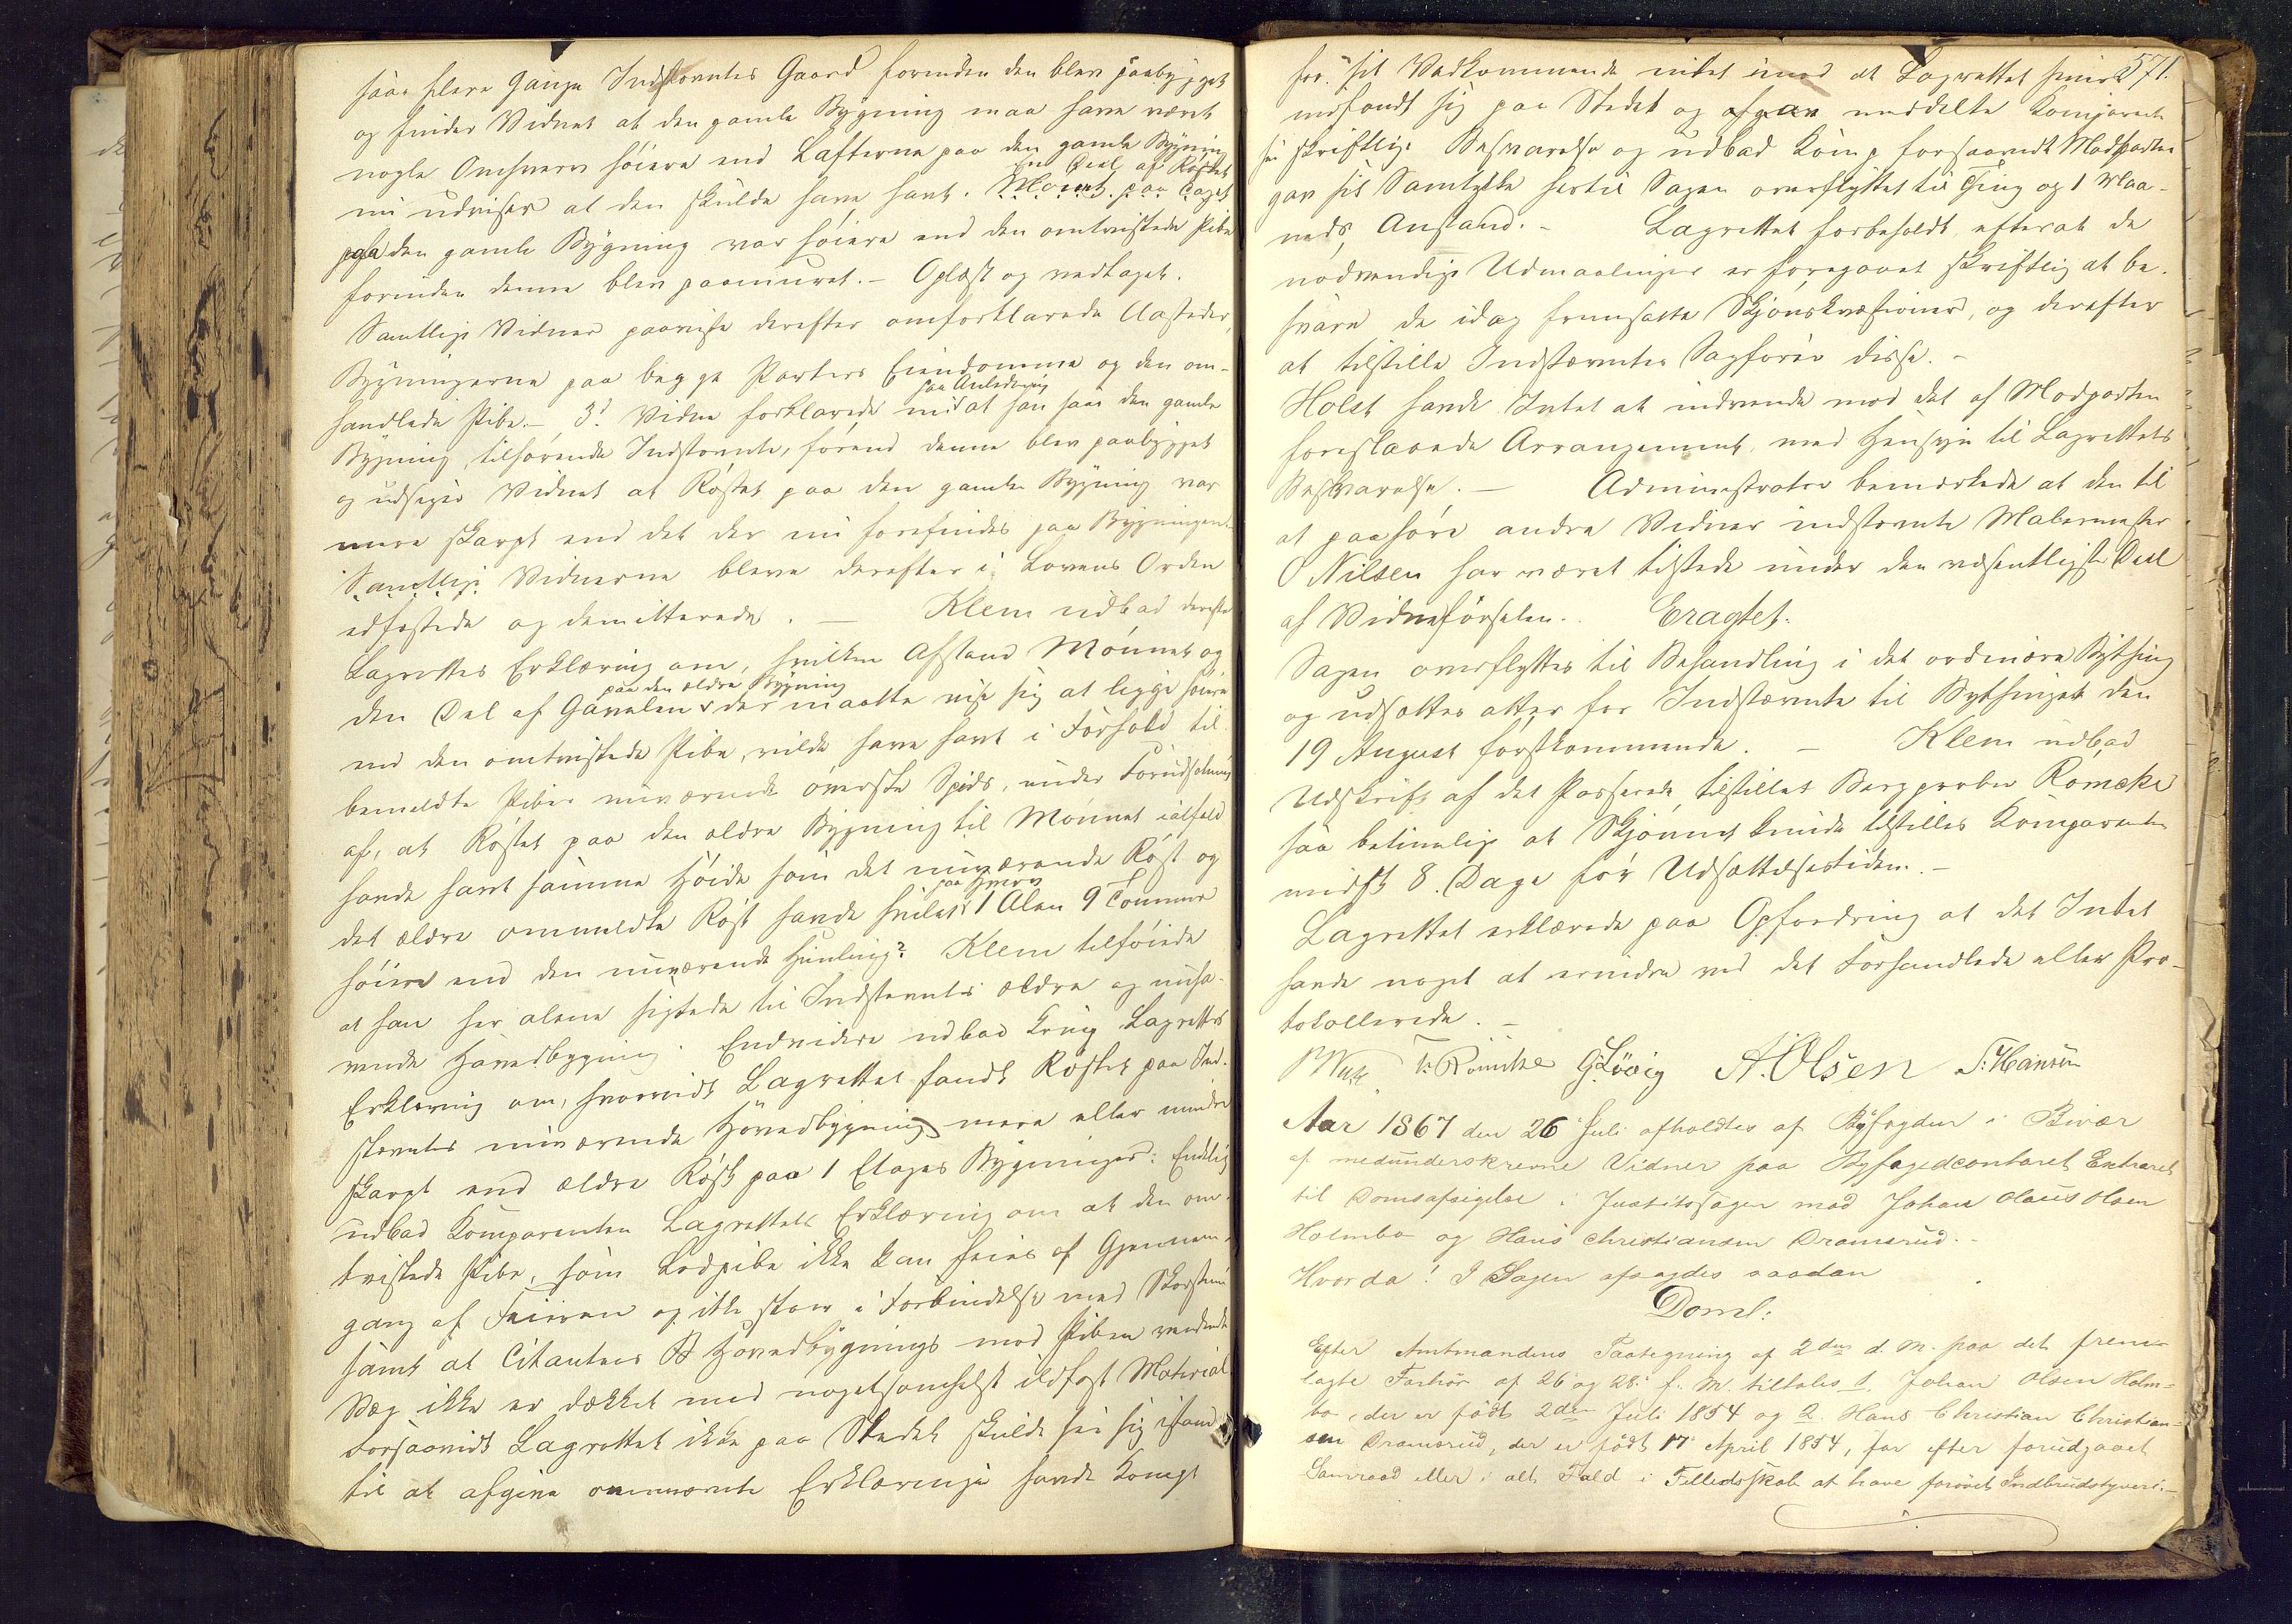 saae flere Gange Indstevntes Gaard forinden den blev paabygget
og finder Vidnet at den gamle Bygning maa have været
nogle Omhverv høiere end Lafterne paa den gamle Bygning
En Deel af Røstet
nu udviser at den skulde have havt. Mønet paa Taget
paa den gamle Bygning var høiere end den omtvistede Pibe
forinden denne blev paamuret. – Oplæst og vedtaget.
Samtlige Vidner paaviste derefter omforklarede Aasteder,
Bygningerne paa begge Parters Eiendomme og den om-
paa Anledning
handlede Pibe. – 3d Vidne forklarede at han saae den gamle
Bygning, tilhørende Indstevnte, førend denne blev paabygget
og udsiger Vidnet at Røstet paa den gamle Bygning var
mere skarpt end det der nu forefindes paa Bygningen. –
Samtlige Vidnerne bleve derefter i Lovens Orden
edfæstede og demitterede. – Klem udbad derefter
Lagrettes Erklæring om, hvilken Afstand Mønnet og
paa den ældre Bygning
den Del af Gavelen der maatte vise sig at ligge høiere
end den omtvistede Pibe, vilde have havt i Forhold til
bemeldte Pibes nuværende øverste Spids, under Forudsætning
af, at Røstet paa den ældre Bygning til Mønnet ialfald
havde havt samme Høide som det nuværende Røst og
paa Hverv
det ældre ommeldte Røst havde hvilet 1 Alen 9 Tommer
høiere end den nuværende Himling? Klem tilføiede
at han her alene sigtede til Indstevntes ældre og nuha-
vende Hovedbygning. Endvidere udbad Komp Lagrettes
Erklæring om, hvorvidt Lagrettet fandt Røstet paa Ind-
stevntes nuværende Hovedbygning mere eller mindre
skarpt end ældre Røst paa 1 Etages Bygninger: Endelig
udbad Komparenten Lagrettets Erklæring om at den om-
tvistede Pibe, som Lodpibe ikke kan feies af Gjennem-
gang af Feieren og ikke staar i Forbindelse med Skorsten
samt at Citantens Hovedbygnings mod Piben vendende
Væg ikke er dækket med nogetsomhelst ildfast Material
Forsaavidt Lagrettet ikke paa Stedet skulde see sig istand
til at afgive omnævnte Erklæringer havde Kompt
571.
for sit Vedkommende intet imod at Lagrettet
indfandt sig paa Stedet og meddelte Komparenten
sin skriftlige Besvarelse og udbad Komp forsaavidt Modparten
gav sit Samtykke hertil Sagen overflyttet til Thing og 1 Maa-
neds Anstand. – Lagrettet forbeholdt efterat de
nødvendige Udmaalinger er foregaaet skriftlig at be-
svare de idag fremsatte Skjønskvæstioner, og derefter
at tilstille Indstævntes Sagfører disse. –
Holst havde Intet at indvende mod det af Modparten
foreslaaede Arrangement, med Hensyn til Lagrettets
Besvarelse. – Administrator bemærkede at den til
at paahøre andre Vidner indstevnte Malermester
O Nilsen har været tilstede under den væsentligste Deel
af Vidneførselen. Eragtet.
Sagen overflyttes til Behandling i det ordinære Bything
og udsættes atter for Indstævnte til Bythinget den
19 August førstkommende. – Klem udbad
Udskrift af det Passerede, tilstillet Bergprober Römcke
saa betimelig at Skjønnet kunde tilstilles Komparenten
mindst 8. Dage før Udsættelsestiden. –
Lagrettet erklærede paa Opfordring at det Intet
havde noget at erindre ved det Forhandlede eller Pro-
tokollerede. –
T. Römcke G Lövig A. Olsen T. Hansen
Aar 1867 den 26 Juli afholdtes af Byfogden i Overvær
af nedunderskrevne Vidner paa Byfogedcontoret Extraret
til Domsafsigelse i Justitssagen mod Johan Olaus Olsen
Holmbo og Hans Christiansen Dramsrud. –
Hvorda! I Sagen afsagdes saadan
Doml:
Efter Amtmandens Paategning af 2den d. M. paa det frem-
lagte Forhør af 26 og 28 f. M. tiltales 1. Johan Olsen Holm-
bo, der er født 2den Juli 1854 og 2. Hans Christian Christian-
sen Dramsrud, der er født 17 April 1854, for efter forudgaaet
Samraad eller i alt Fald i Fælledsskab at have forøvet Indbrudstyveri. –